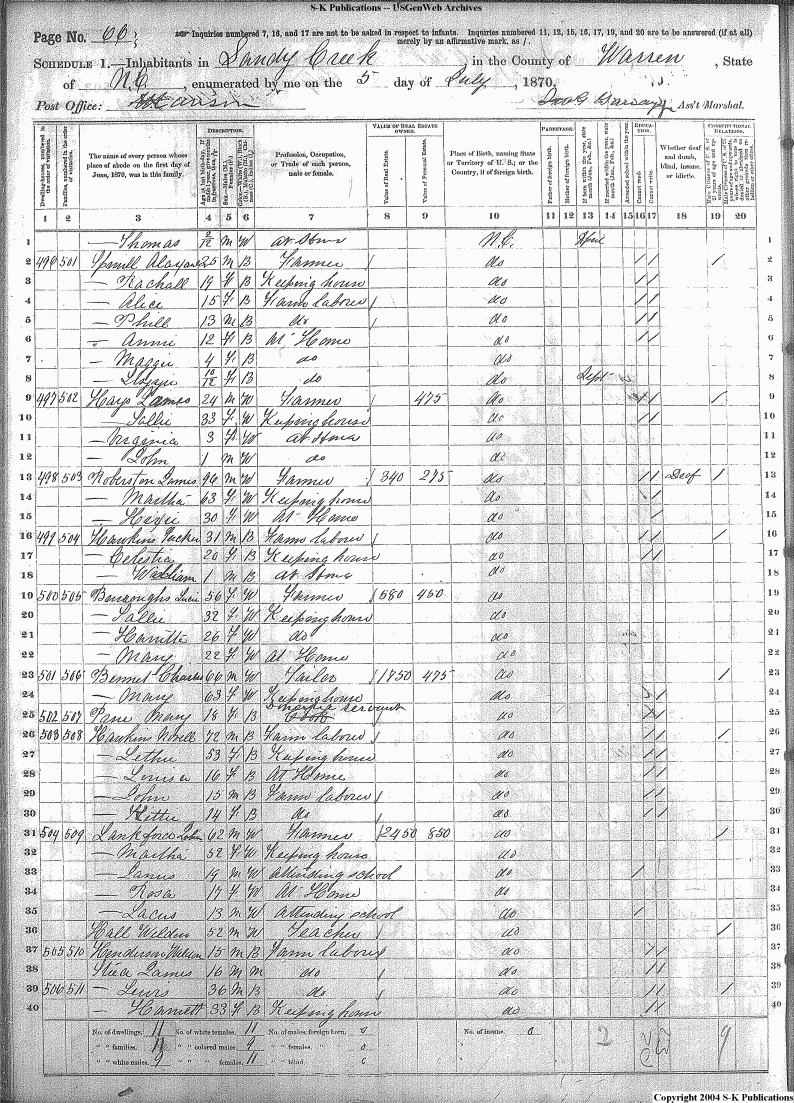 S-K Publications -- USGenWeb Archives
Page No. 66
Inquiries numbered 7, 16, and 17 are not to be asked in respect to infants. Inquiries numbered 11, 12, 15, 16, 17, 19, and 20 are to be answered (if at all) merely by an affirmative mark, as /.
SCHEDULE 1.—Inhabitants in Sandy Creek, in the County of Warren, State
of N.C., enumerated by me on the 5 day of July, 1870.
Post Office: Ass't Marshal.
DESCRIPTION. VALUE OF REAL ESTATE OWNED. PARENTAGE. EDUCATION. CONSTITUTIONAL RELATIONS.
The name of every person whose place of abode on the first day of June, 1870, was in this family.
Profession, Occupation, or Trade of each person, male or female.
Value of Real Estate. Value of Personal Estate.
Place of Birth, naming State or Territory of U. S.; or the Country, if of foreign birth.
Father of foreign birth. Mother of foreign birth.
Cannot read. Cannot write.
Whether deaf and dumb, blind, insane, or idiotic.
1 2 3 4 5 6 7 8 9 10 11 12 13 14 15 16 17 18 19 20
1 — Thomas 2/12 M W at Home N.C. April 1
2 496 501 25 M B Farmer / do / / / 2
3 — Rachall 19 F B Keeping house do / / 3
4 — Alice 15 F B Farm laborer / do / / 4
5 — Phill 13 M B do / do / / 5
6 — Annie 12 F B At Home do / / 6
7 — Maggie 4 F B do do 7
8 10/12 F B do do Sept 8
9 497 502 Hays James 24 M W Farmer 475 do / / / 9
10 — Sallie 33 F W Keeping house do / / 10
11 — Virginia 3 F W at Home do 11
12 — John 1 M W do do 12
13 498 503 Roberston James 96 M W Farmer / 340 275 do / / Deaf / 13
14 — Martha 63 F W Keeping house do / 14
15 30 F W At Home do / 15
16 499 504 Hawkins Tucker 31 M B Farm laborer / do / / / 16
17 — Celestia 20 F B Keeping house do / / 17
18 — William 1 M B at Home do 18
19 500 505 Burroughs 56 F W Farmer / 580 450 do 19
20 — Sallie 32 F W Keeping house do 20
21 — Harritte 26 F W do do 21
22 — Mary 22 F W At Home do 22
23 501 506 Bennet Charles 66 M W Tailor / 1750 475 do / 23
24 — Mary 63 F W Keeping house do / 24
25 502 507 Mary 18 F B Domestic servant do / 25
26 503 508 Hawkins 72 M B Farm laborer / do / / / 26
27 — Lethie 53 F B Keeping house do / / 27
28 — Louisa 16 F B At Home do / / 28
29 — John 15 M B Farm laborer / do / / 29
30 — Hettie 14 F B do / do / / 30
31 504 509 Lankford John 62 M W Farmer / 2450 850 do / 31
32 — Martha 52 F W Keeping house do 32
33 19 M W attending school do / 33
34 — Rosa 17 F W At Home do 34
35 — Lucus 13 M W attending school do / 35
36 Hall Weldon 52 M W Teacher / do / 36
37 505 510 Henderson 15 M B Farm laborer do / / 37
38 James 16 M M do do / / 38
39 506 511 — Lewis 36 M B do / do / / / 39
40 — Harriett 33 F B Keeping house do / / 40
No. of dwellings, 11 No. of white females, 11 No. of males, foreign born, 0 No. of insane, 0 2 9
" " families, 11 " " colored males, 9 " " females, " 0
" " white males, 9 " " " females, 11 " " blind,
Copyright 2004 S-K Publications